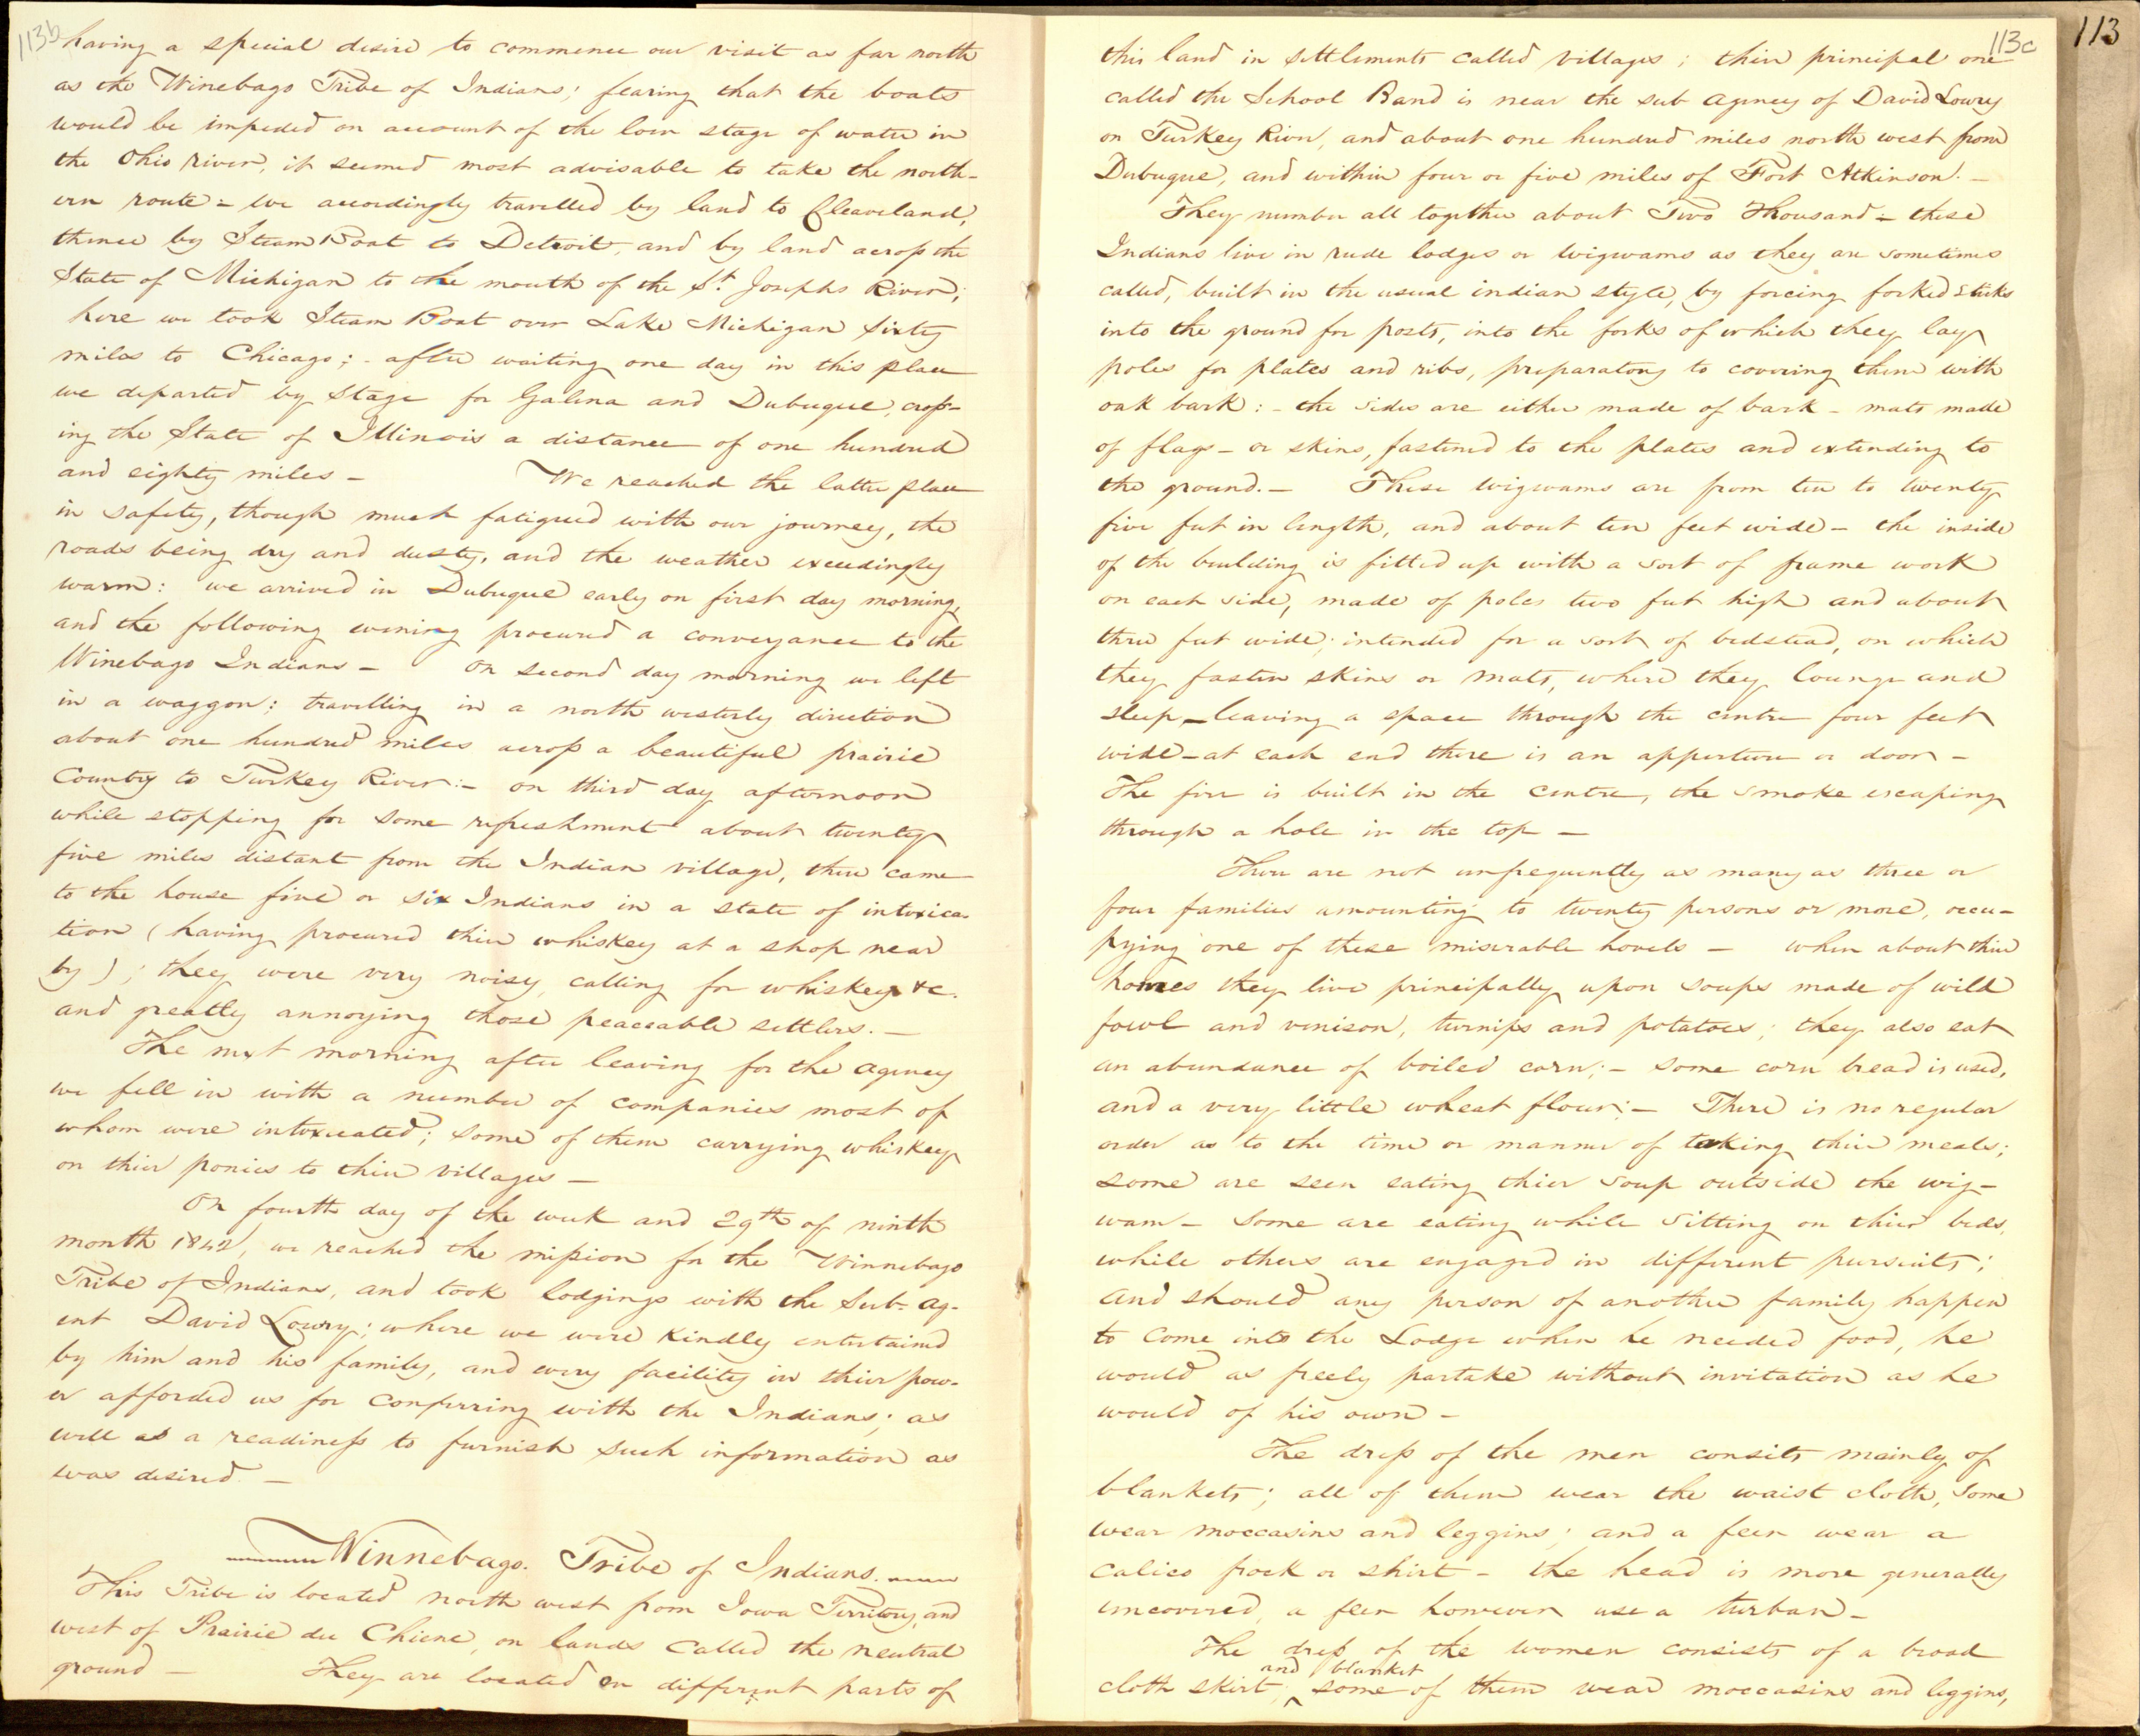 113b
having a special desire to commence our visit as far north
as the Winebago Tribe of Indians; fearing that the boats
would be impeded on account of the low stage of water in
the Ohio river, it seemed most advisable to take the north-
ern route - we accordingly travelled by land to Cleaveland,
thence by Steam Boat to Detroit, and by land across the
State of Michigan to the mouth of the St. Josephs River;
here we took Steam Boat over Lake Michigan sixty
miles to Chicago; - after waiting one day in this place
we departed by Stage for Galena and Dubuque, cross-
ing the State of Illinois a distance of one hundred
and eighty miles - We reached the latter place
in safety, though much fatigued with our journey, the
roads being dry and dusty, and the weather exceedingly
warm: we arrived in Dubuque early on first day morning,
and the following evening procured a conveyance to the
Winebago Indians - On second day morning we left
in a waggon; travelling in a north westerly direction
about one hundred miles across a beautiful prairie
Country to Turkey River: - on third day afternoon
while stopping for some refreshment about twenty
five miles distant from the Indian village, there came
to the house five or six Indians in a state of intoxica-
tion (having procured thier whiskey at a shop near
by); they were very noisy, calling for whiskey &c.
and greatly annoying those peaceable settlers. -
The next morning after leaving for the agency
we fell in with a number of companies most of
whom were intoxicated; some of them carrying whiskey
on thier ponies to thier villages -
On fourth day of the week and 29th of ninth
month 1842, we reached the mission for the Winnebago
Tribe of Indians, and took lodgings with the Sub-ag-
ent David Lowry; where we were kindly entertained
by him and his family, and every facility in thier pow-
er afforded us for conferring with the Indians; as
well as a readiness to furnish such information as
was desired. -
Winnebago. Tribe of Indians.
This Tribe is located north west from Iowa Territory, and
west of Prairie du Chiene, on lands called the neutral
ground - They are located on different parts of
113c
113
this land in settlements called villages; thier principal one
called the School Band is near the sub agency of David Lowry
on Turkey River, and about one hundred miles north west from
Dubuque, and within four or five miles of Fort Atkinson. -
They number all together about Two Thousand - these
Indians live in rude lodges or wigwams as they are sometimes
called, built in the usual indian style, by forcing forked stakes
into the ground for posts, into the forks of which they lay
poles for plates and ribs, preparatory to covering them with
oak bark: - the sides are either made of bark - mats made
of flags - or skins, fastened to the plates and extending to
the ground. - These wigwams are from ten to twenty
five feet in length, and about ten feet wide - the inside
of the building is fitted up with a sort of frame work
on each side, made of poles two feet high and about
three feet wide; intended for a sort of bedstead, on which
they fasten skins or mats, where they lounge and
sleep - leaving a space through the centre four feet
wide - at each end there is an apperture or door -
The fire is built in the centre, the smoke escaping
through a hole in the top -
There are not unfrequently as many as three or
four families amounting to twenty persons or more, occu-
pying one of these miserable hovels - when about thier
homes they live principally upon soups made of wild
fowl and venison, turnips and potatoes; they also eat
an abundance of boiled corn; - some corn bread is used,
and a very little wheat flour: - There is no regular
order as to the time or manner of taking thier meals;
some are seen eating thier soup outside the wig-
wam - some are eating while sitting on thier beds,
while others are engaged in different pursuits;
and should any person of another family happen
to come into the Lodge when he needed food, he
would as freely partake without invitation as he
would of his own -
The dress of the men consits mainly of
blankets; all of them wear the waist cloth, some
wear moccasins and leggins; and a few wear a
calico frock or shirt - the head is more generally
uncovered, a few however use a turban -
The dress of the women consists of a broad
cloth skirt, and blanket some of them wear moccasins and leggins,